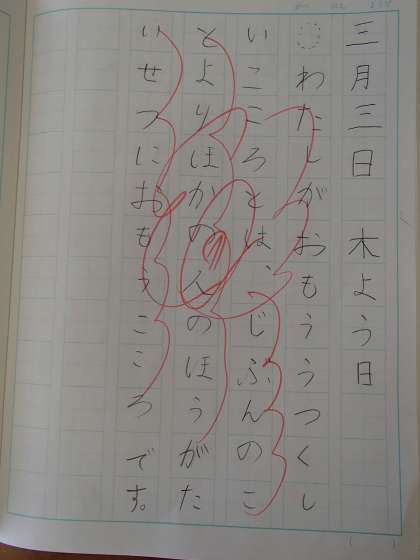 三月三日 木よう日
わたしがおもううつくし
いこころとは、じぶんのこ
とよりほかの人のほうがた
いせつにおもうこころです。